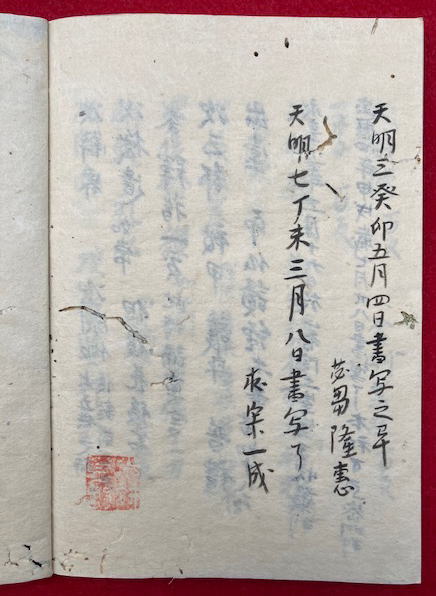 天明三癸卯五月四日書写之畢
苾芻隆恵
天明七丁未三月八日書写了
求寂一成